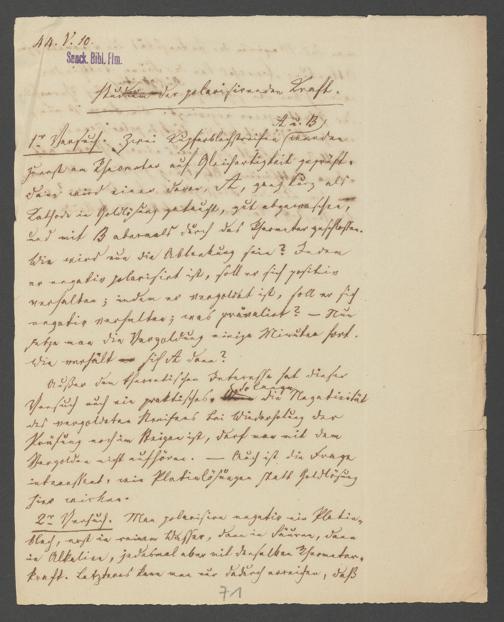 44. V. 10.
Senck. Bibl. Ffm.
Studien der polarisirenden Kraft.
A u. B
1r Versuch. Zwei Kupferblechstreifen wurden
zuerst am Rheometer auf Gleichartigkeit geprüft.
Dann wird einer derer, A, ganz kurz als
Kathode in Goldlösung getaucht, gut abgewaschen,
und mit B abermals durch das Rheometer geschlossen.
Wie wird nun die Ablenkung sein? Indem
er negativ polarisirt ist, soll er sich positiv
verhalten; indem er vergoldet ist, soll er sich
negativ verhalten; was prävalirt? — Nun
setze man die Vergoldung einige Minuten fort.
Wie verhält sich A dann?
Außer dem theoretischen Interesse hat dieser
Versuch auch ein praktisches. So lange die Negativität
des vergoldeten Streifens bei Wiederholung der
Prüfung noch im Steigen ist, darf man mit dem
Vergolden nicht aufhören. — Auch ist die Frage
interessant, wie Platinlösungen statt Goldlösung
hier wirken.
2r Versuch. Man polarisire negativ ein Platin-
blech, erst in reinem Wasser, dann in Säuren, dann
in Alkalien, jedesmal aber mit derselben Rheometer-
kraft. Letzteres kann man nur dadurch erreichen, daß
71